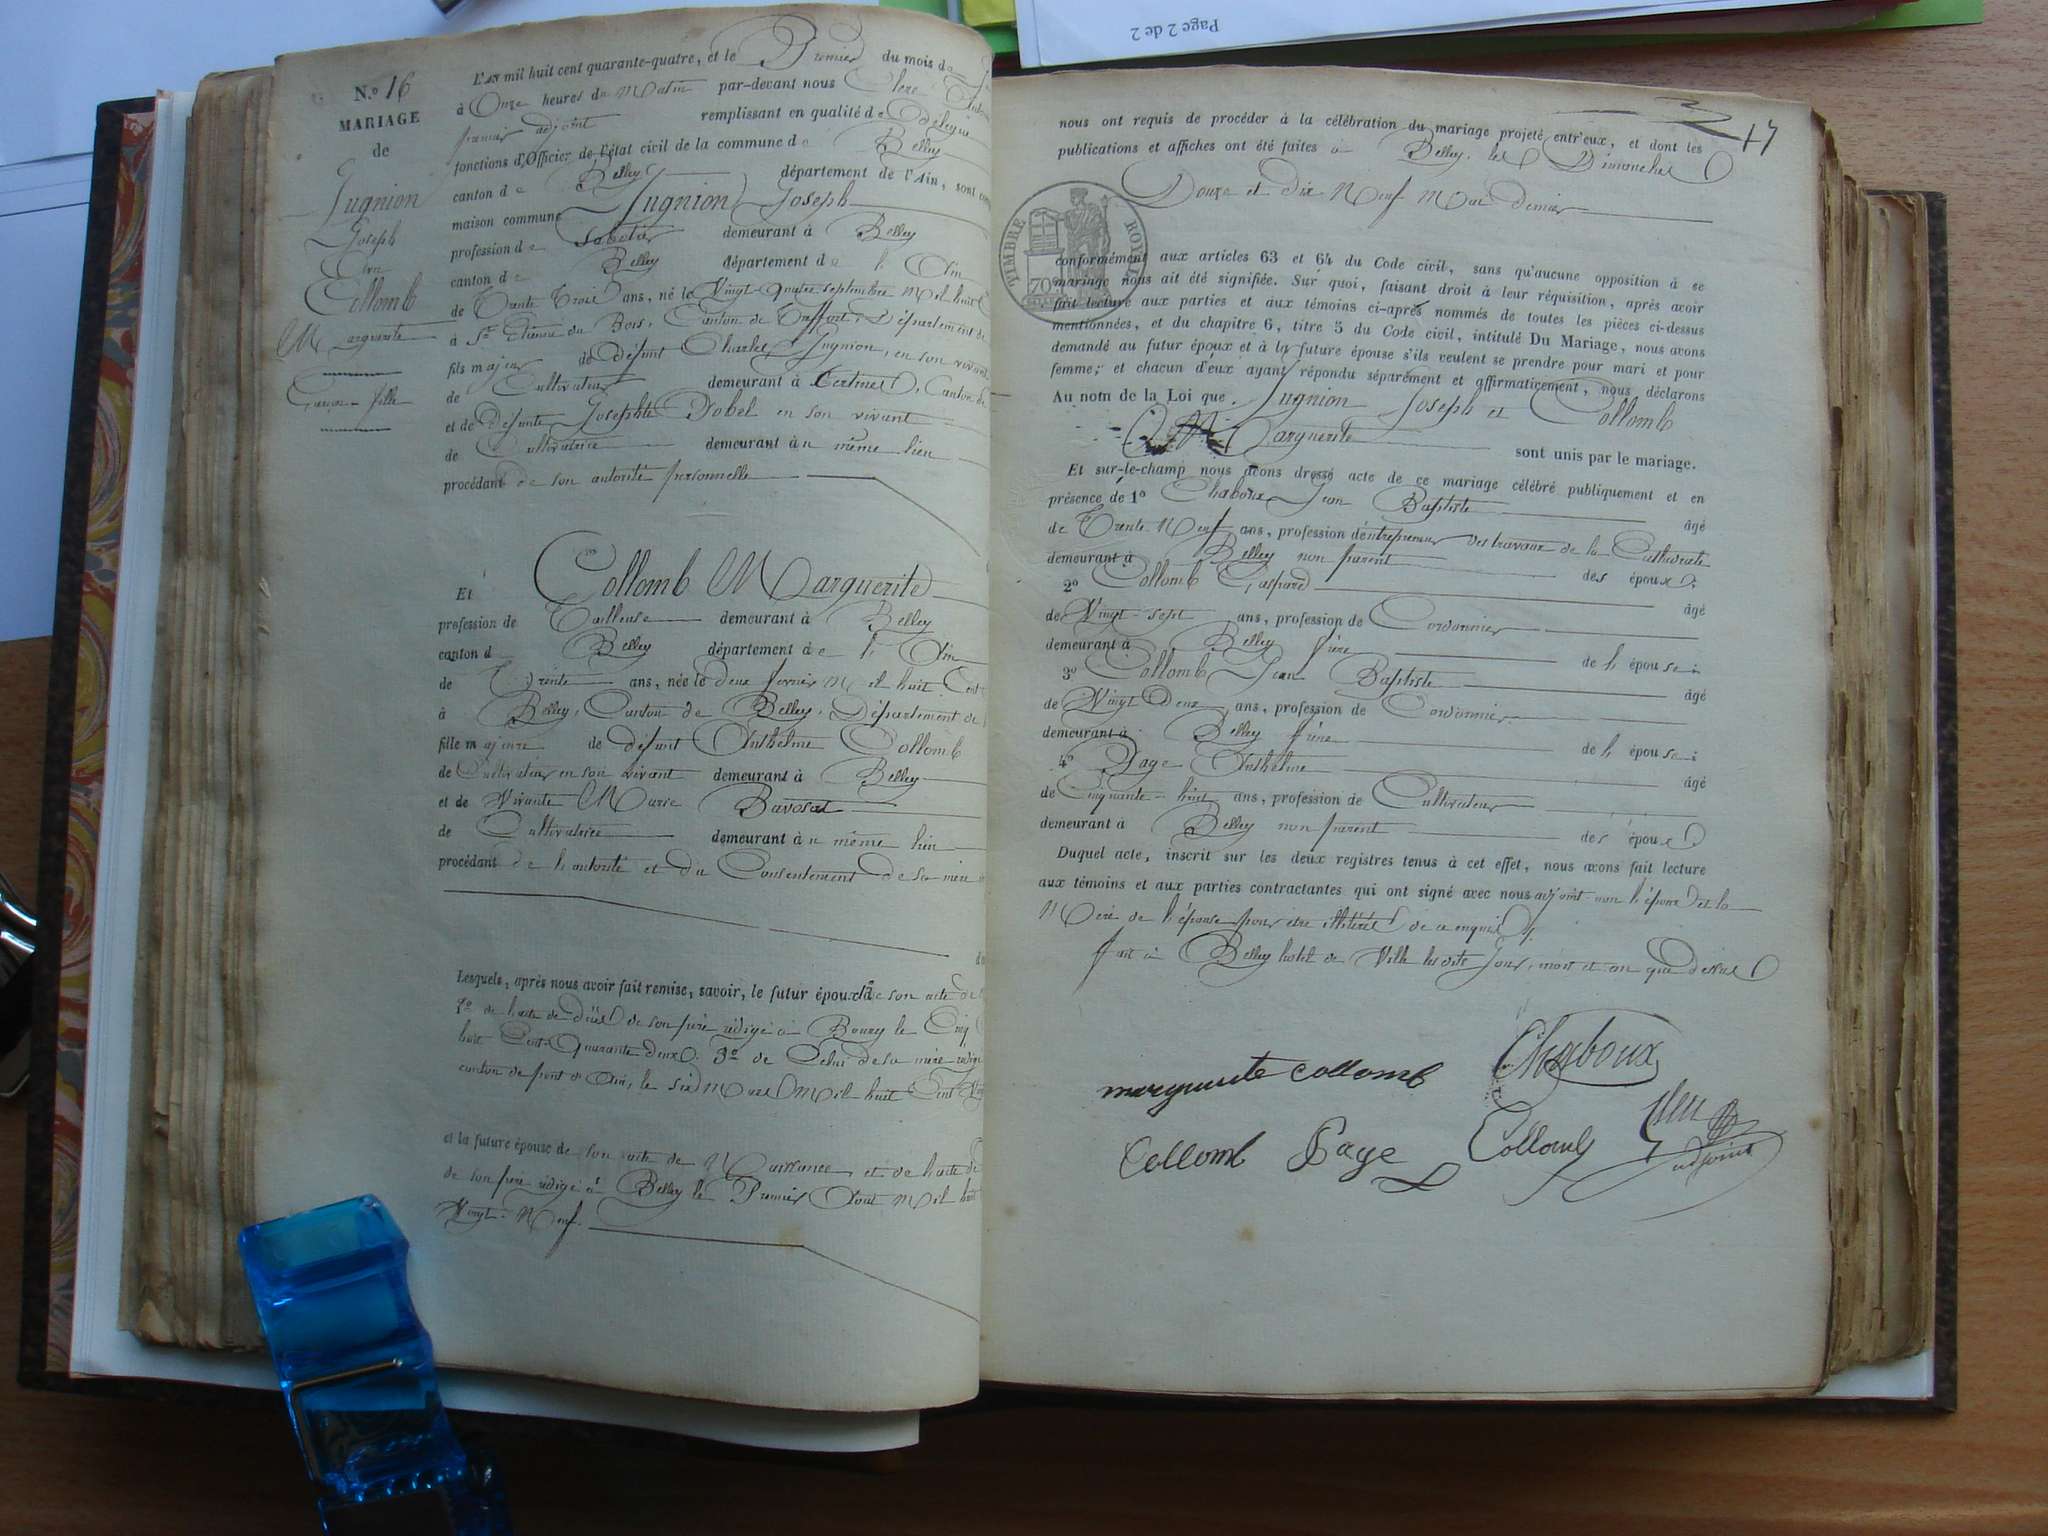 Page 2 de 2
N.o 16
MARIAGE
de
Jugnion
Joseph
Et
Collomb
Marguerite
Garçon - fille
L'AN mil huit cent quarante-quatre, et le Premier du mois de
à Onze heures du Matin par-devant nous
premier adjoint remplissant en qualité de Délégué
fonctions d'Officier de l'état civil de la commune de Belley
canton de Belley département de l'Ain, sont
maison commune Jugnion Joseph
profession de Sabotier demeurant à Belley
canton de Belley département de l'Ain
de Trente Trois ans, né le Vingt quatre septembre Mil huit
à St Etienne du Bois, Canton de Treffort, Département de
fils majeur de défunt Charles Jugnion, en son vivant
de Cultivateur demeurant à Certines, Canton de
et de défunte Josephte Nobel en son vivant
de Cultivatrice demeurant au même lieu
procédant de son autorité personnelle
Et Collomb Marguerite
profession de Tailleuse demeurant à Belley
canton d Belley département de l'Ain
de Trente ans, née le deux février Mil huit Cent
à Belley, Canton de Belley, Département de
fille majeure de défunt Anthelme Collomb
de Cultivateur en son vivant demeurant à Belley
et de Vivante Marie Bavosat
de Cultivatrice demeurant au même lieu
procédant de l'autorité et du Consentement de sa mère
Lesquels, après nous avoir fait remise, savoir, le futur époux de son acte de
2o de l'acte de décès de son père rédigé à Bourg le Cinq
huit Cent Quarante deux. 3o de Celui de sa mère rédigé
canton de pont d'Ain, le six Mars Mil huit Cent
et la future épouse de son acte de Naissance et de l'acte de
de son père rédigé à Belley le Premier Aout Mil huit
Vingt-Neuf.
17
nous ont requis de procéder à la célébration du mariage projeté entr'eux, et dont les
publications et affiches ont été faites à Belley, les Dimanches
Douze et dix Neuf Mai dernier
TIMBRE ROYAL
70c
conformément aux articles 63 et 64 du Code civil, sans qu'aucune opposition à ce
mariage nous ait été signifiée. Sur quoi, faisant droit à leur réquisition, après avoir
fait lecture aux parties et aux témoins ci-après nommés de toutes les pièces ci-dessus
mentionnées, et du chapitre 6, titre 5 du Code civil, intitulé Du Mariage, nous avons
demandé au futur époux et à la future épouse s'ils veulent se prendre pour mari et pour
femme; et chacun d'eux ayant répondu séparément et affirmativement, nous déclarons
Au nom de la Loi que Jugnion Joseph et Collomb
Marguerite sont unis par le mariage.
Et sur-le-champ nous avons dressé acte de ce mariage célébré publiquement et en
présence de 1o Chaboux Jean Baptiste âgé
de Trente Neuf ans, profession d'entrepreneur des travaux de la Cathedrale
demeurant à Belley non parent des époux;
2o Collomb Gaspard âgé
de Vingt-sept ans, profession de Cordonnier
demeurant à Belley frère de l'épouse;
3o Collomb Jean Baptiste âgé
de Vingt Deux ans, profession de Cordonnier
demeurant à Belley frère de l'épouse;
4o Page Anthelme âgé
de Cinquante-huit ans, profession de Cultivateur
demeurant à Belley non parent des époux
Duquel acte, inscrit sur les deux registres tenus à cet effet, nous avons fait lecture
aux témoins et aux parties contractantes qui ont signé avec nous adjoint non l'époux et la
Mère de l'épouse pour être illitérés de ce enquis.
Fait à Belley hotel de Ville les dits Jour, mois et an que dessus
marguerite collomb
Chaboux
Collomb
Page
Collomb
adjoint